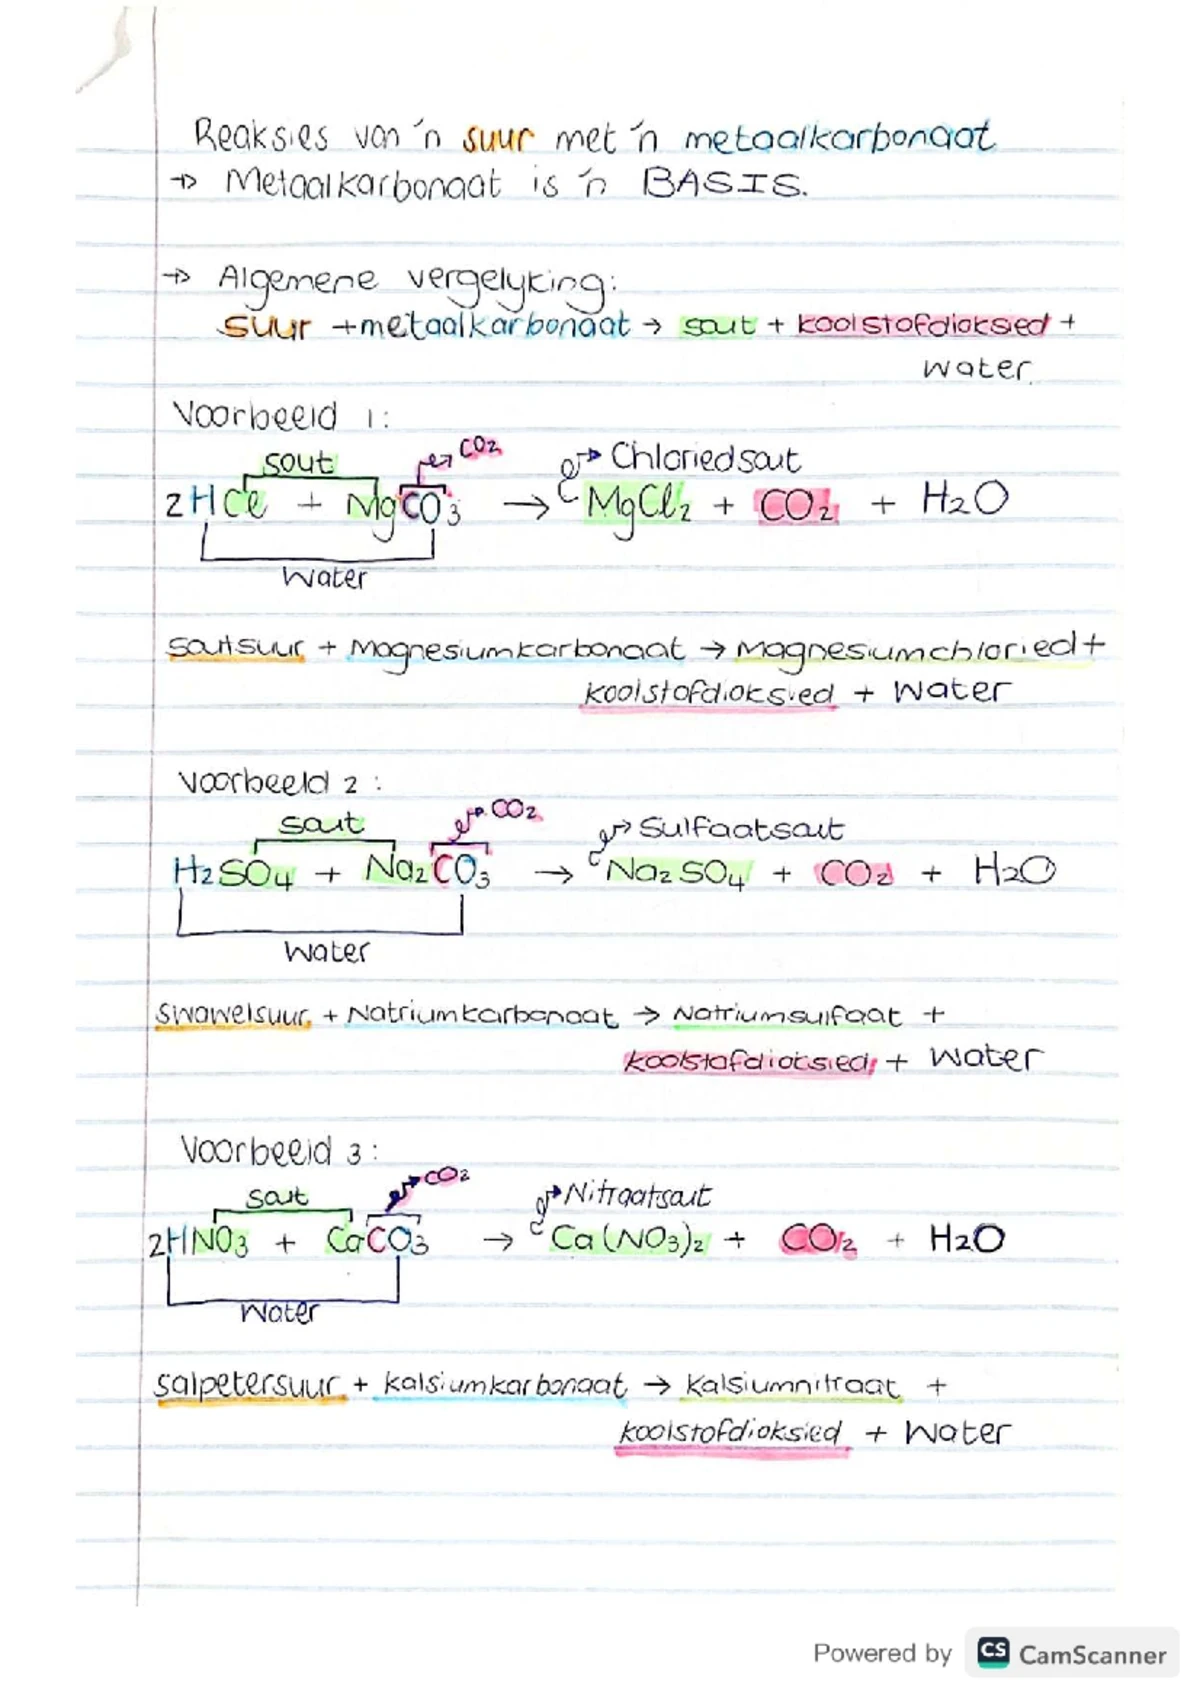 Reaksies van 'n suur met 'n metaalkarbonaat
→ Metaalkarbonaat is 'n BASIS.
→ Algemene vergelyking:
suur + metaalkarbonaat → sout + koolstofdioksied +
water.
Voorbeeld 1:
sout CO2 Chloriedsout
2HCl + MgCO3 → MgCl2 + CO2 + H2O
Water
soutsuur + Magnesiumkarbonaat → Magnesiumchloried +
koolstofdioksied + Water
Voorbeeld 2:
sout CO2 Sulfaatsout
H2SO4 + Na2CO3 → Na2SO4 + CO2 + H2O
Water
swawelsuur + Natriumkarbonaat → Natriumsulfaat +
koolstofdioksied + Water
Voorbeeld 3:
sout CO2 Nitraatsout
2HNO3 + CaCO3 → Ca(NO3)2 + CO2 + H2O
Water
salpetersuur + kalsiumkarbonaat → kalsiumnitraat +
koolstofdioksied + Water
Powered by CS CamScanner